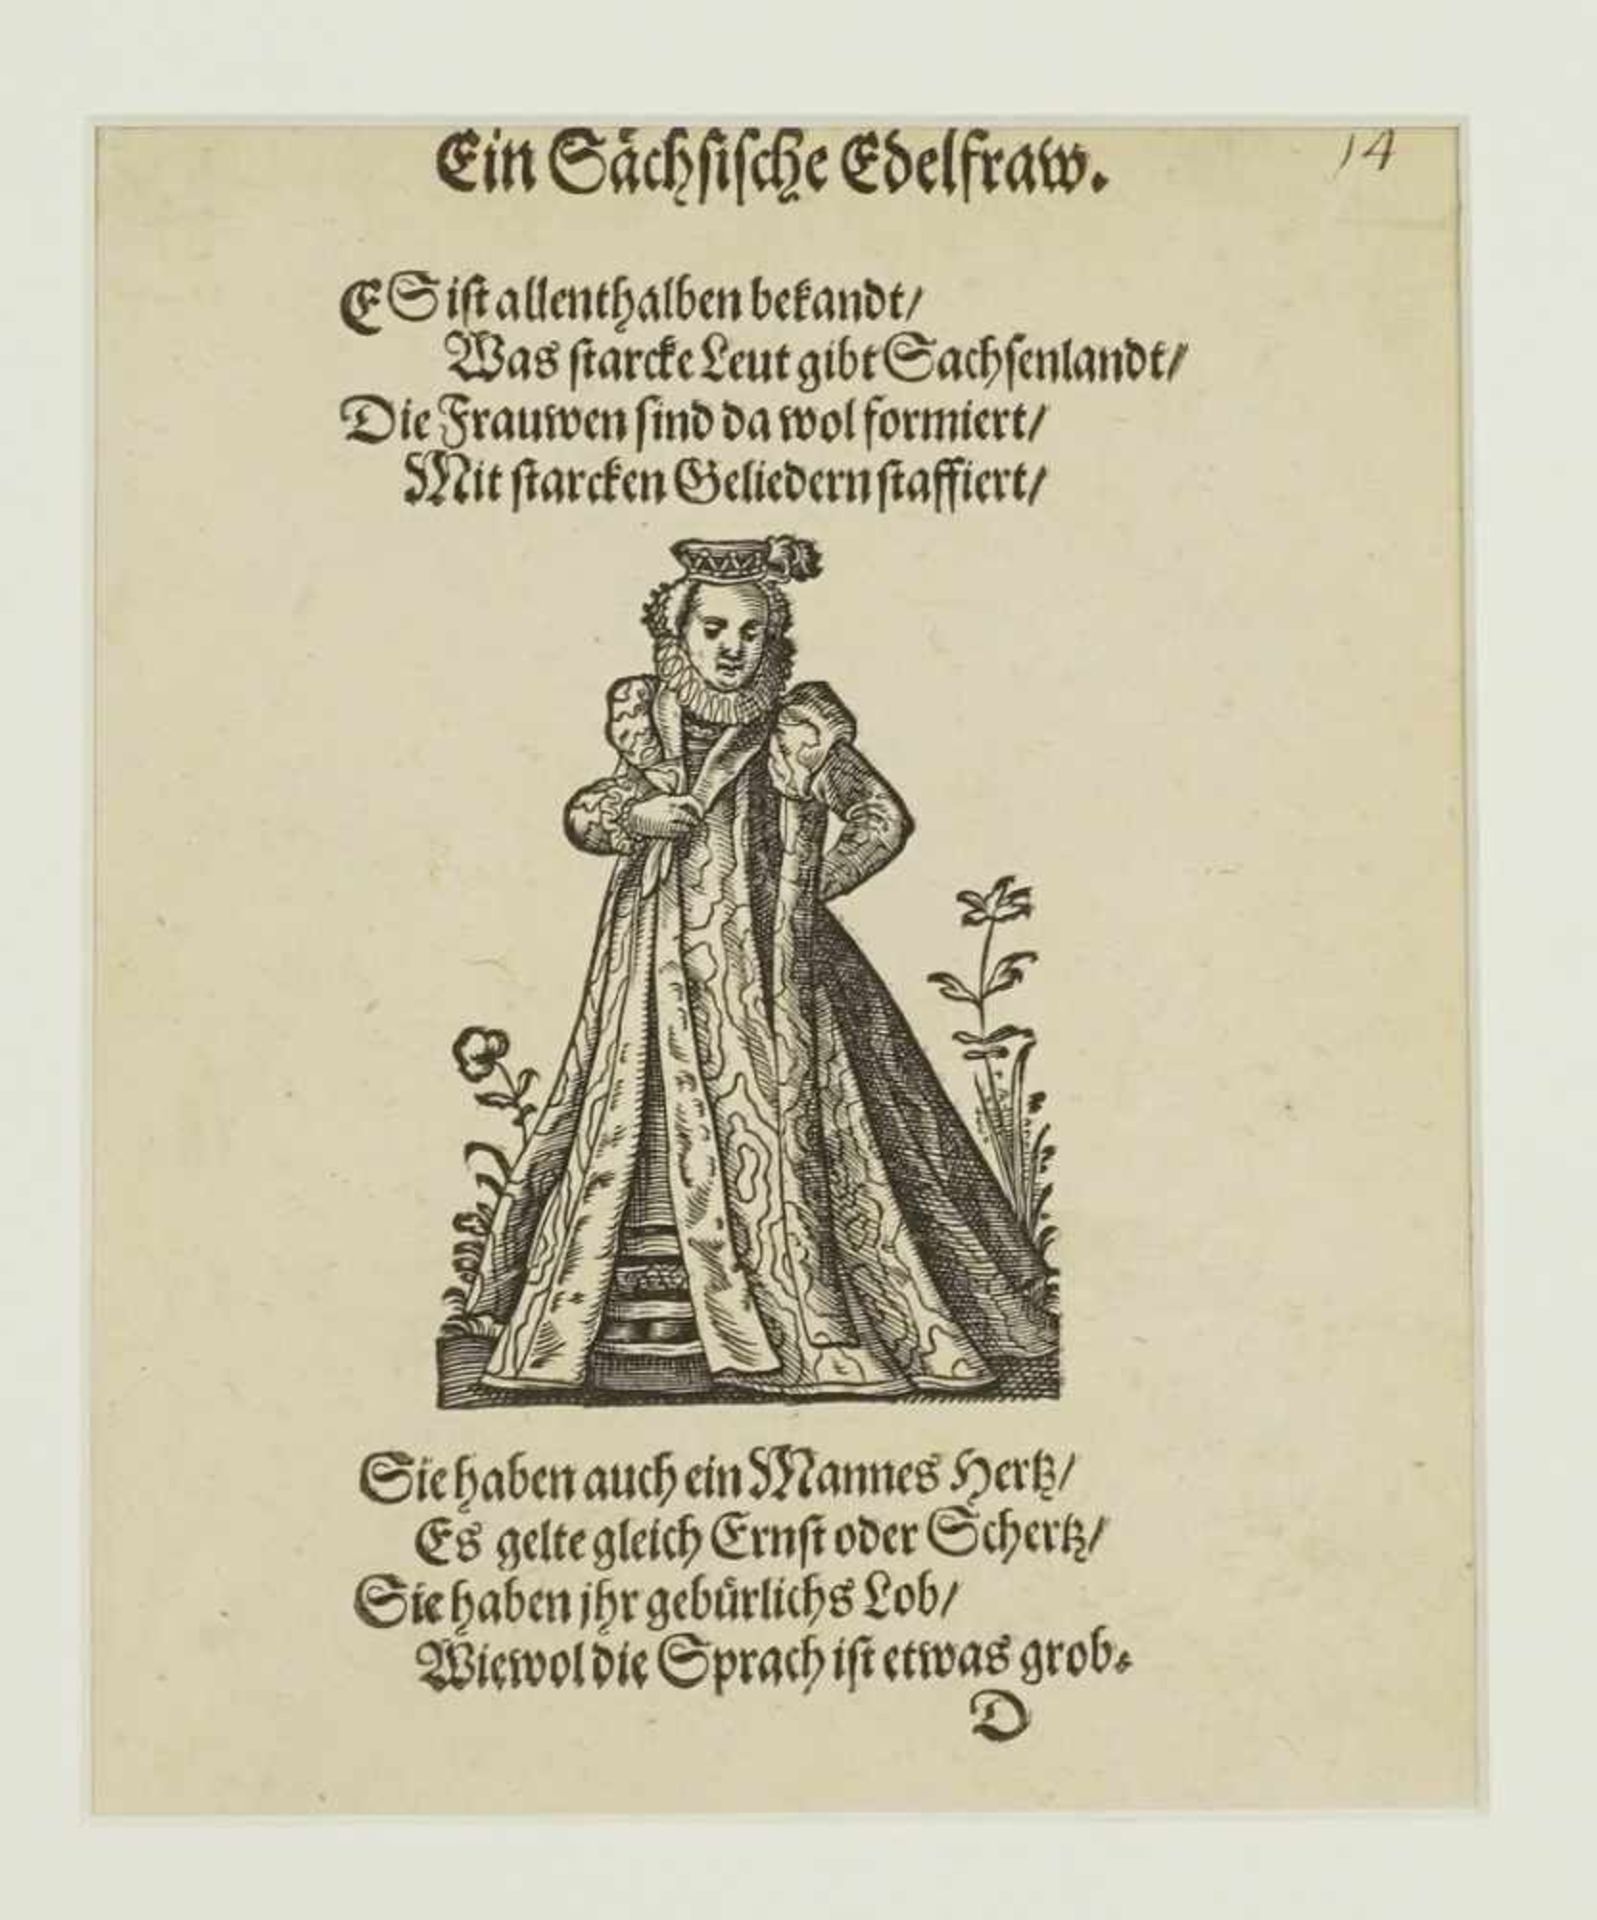 Ein Sächsische Edelfraw.
14
ES ist allenthalben bekandt/
Was starcke Leut gibt Sachsenlandt/
Die Frauwen sind da wol formiert/
Mit starcken Geliedern staffiert/
Sie haben auch ein Mannes Hertz/
Es gelte gleich Ernst oder Schertz/
Sie haben jhr gebürlichs Lob/
Wiewol die Sprach ist etwas grob.
D